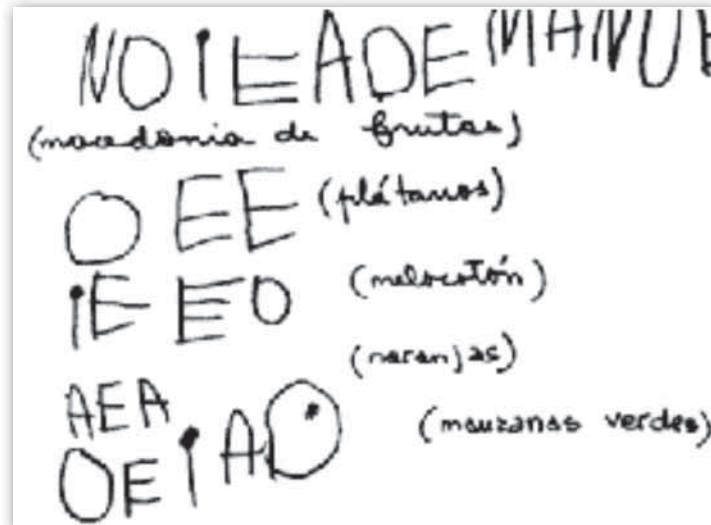 NOIEADEMANUE
(macedonia de frutas)
OEE (plátanos)
iEEO (melocotón)
(naranjas)
AEA
OEiAO (manzanas verdes)